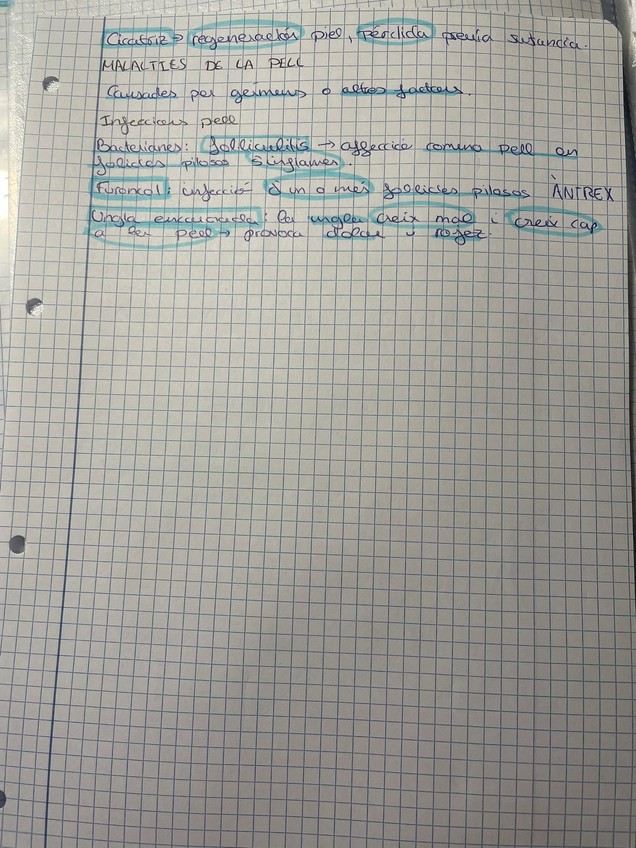 Cicatriz → regeneración piel, pérdida previa sutancia.
MALALTIES DE LA PELL
Causades per gèrmens o altres factors.
Infeccions pell
Bacterianes: folliculitis → affecció comuna pell on
folicles pilosos s'inflamen.
Furoncol: infecció d'un o més folicles pilosos ÀNTREX
Ungla encarnada: la ungla creix mal i creix cap
a la pell → provoca dolor i rojez.